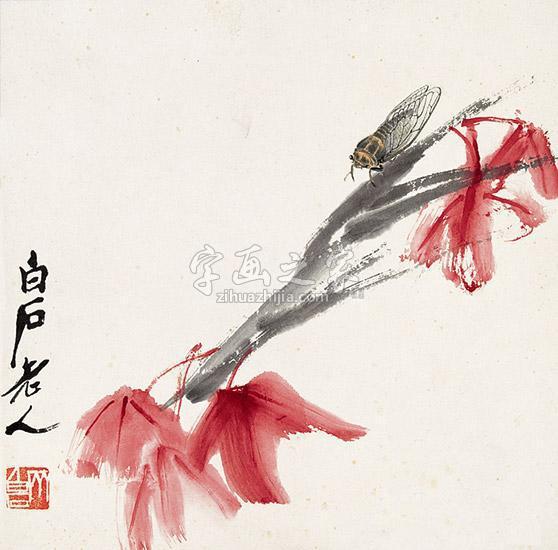 白石老人
字画之家
zihuazhijia.com